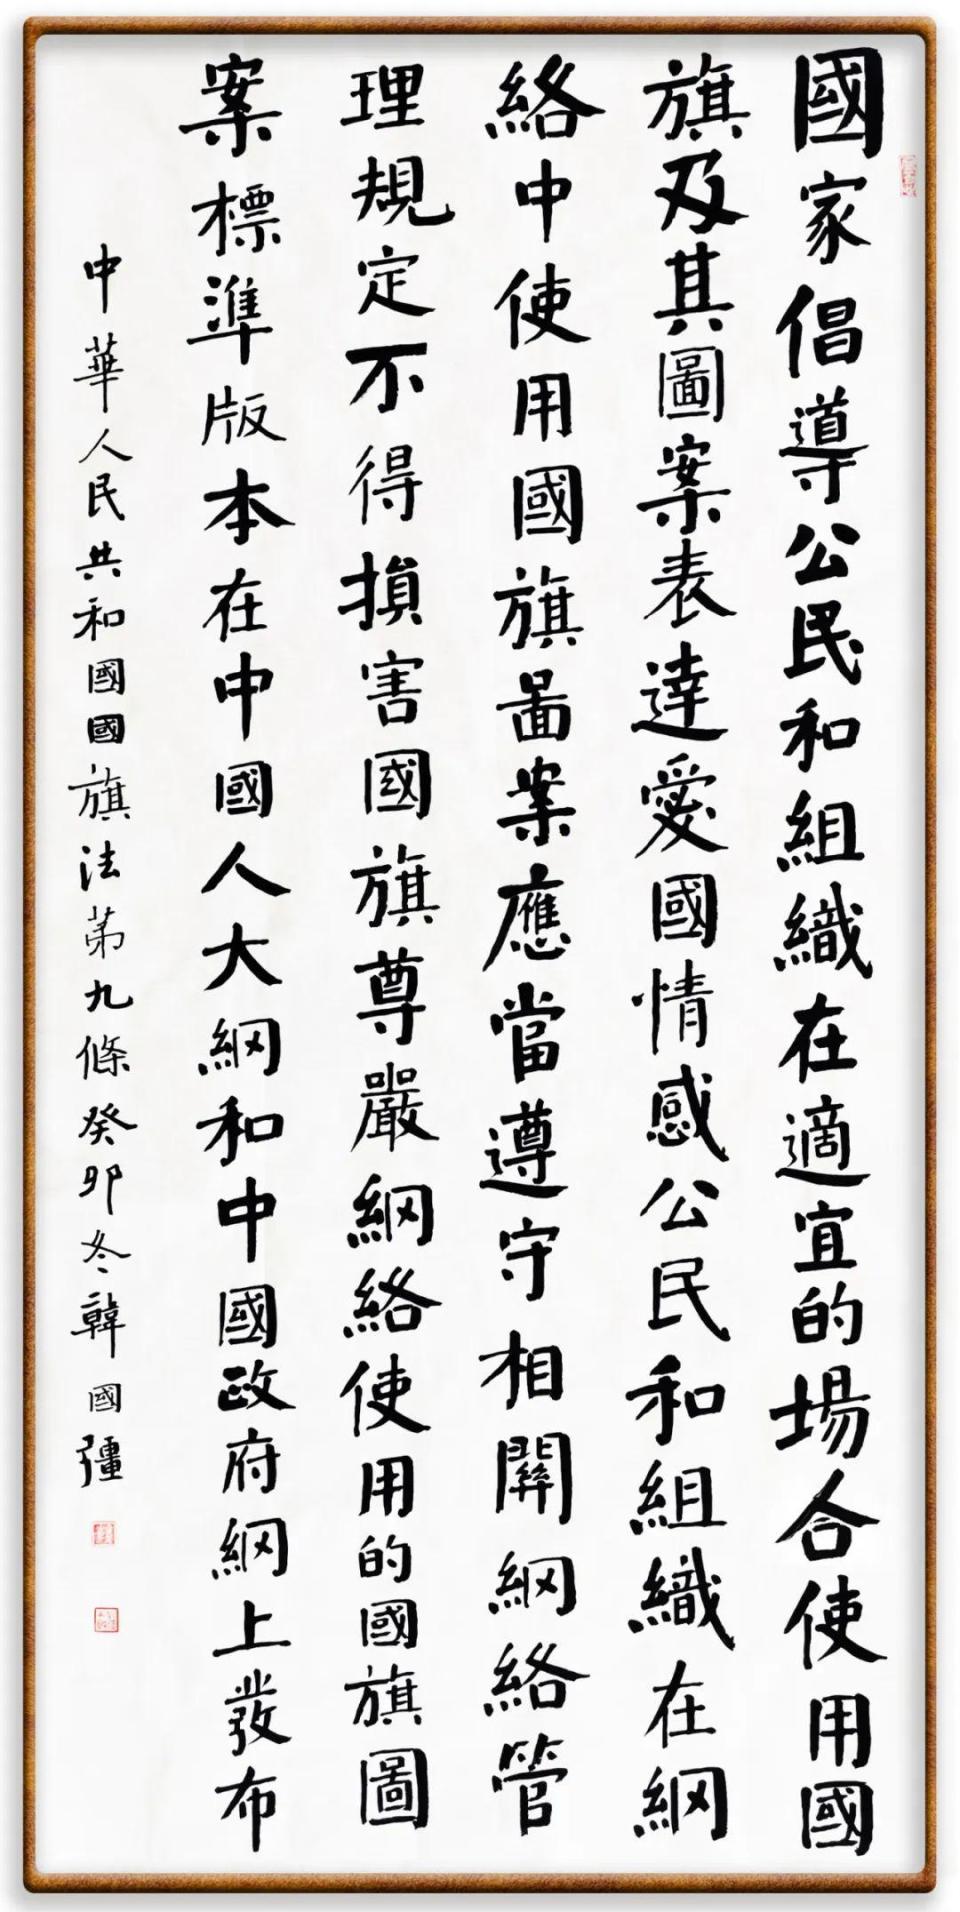 國家倡導公民和組織在適宜的場合使用國
旗及其圖案表達愛國情感公民和組織在網
絡中使用國旗啚案應當遵守相關網絡管
理規定不得損害國旗尊嚴網絡使用的國旗圖
案標準版本在中國人大網和中國政府網上發布
中華人民共和國國旗法第九條癸卯冬韓國彊